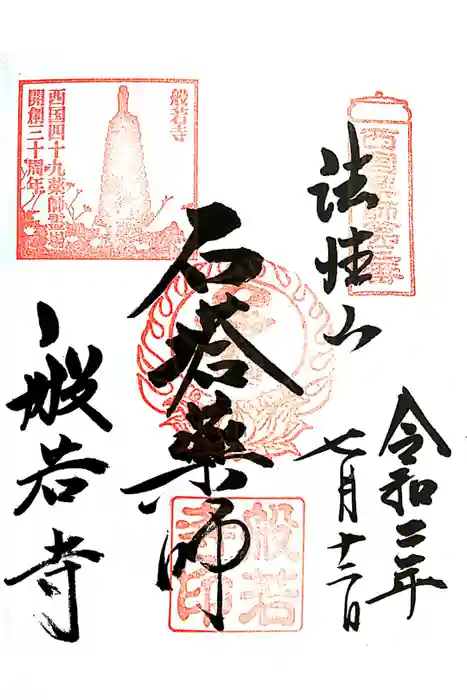 西国薬師第三番
法性山
令和二年
七月十二日
石塔薬師
般若寺
般若寺
西国四十九薬師霊場
開創三十周年
般若
寺印